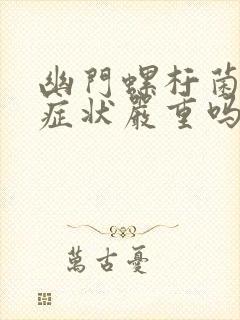 幽門螺杆菌
症状嚴重吗
萬古憂